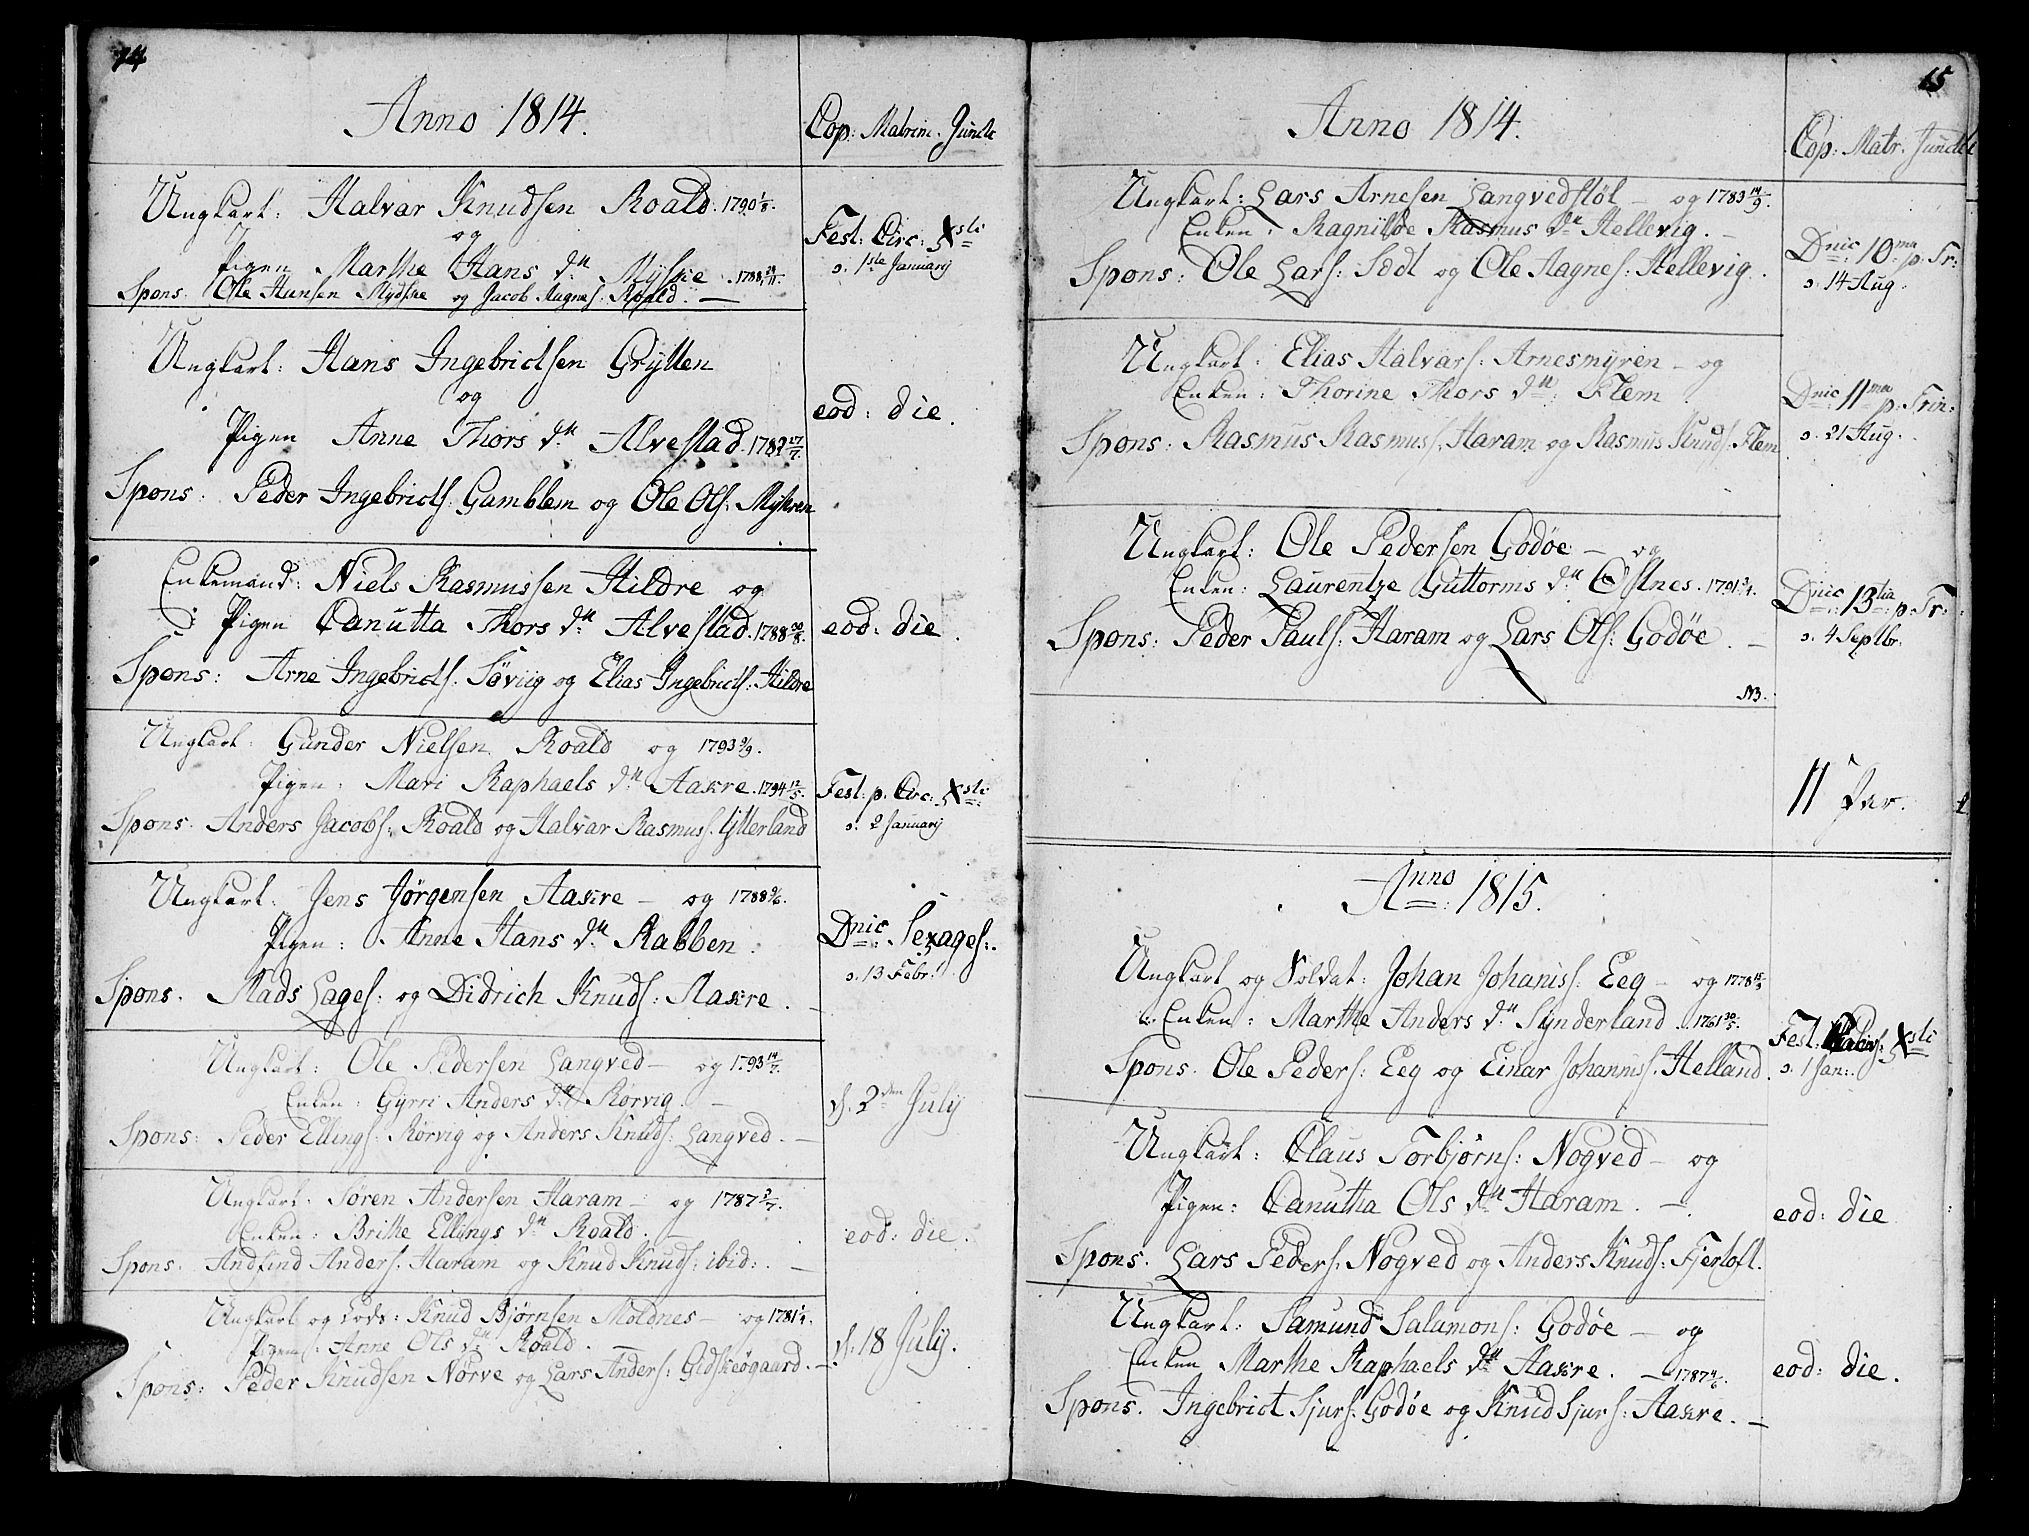 14
Anno 1814.
Cop: Matrim. Juncti
Ungkarl: Halvar Knudsen Roald. 1790 1/8.
og
Pigen Marthe Hans d.tt Myske 1788 29/11.
Spons. Ole Hansen Mydske og Jacob Aagnes: Roald. —
Fest: Circ: Xsti
d. 1ste January
Ungkarl: Hans Ingebrictsen Grytten
og
Pigen Anne Thors d.tt Alvestad. 1782 17/7.
Spons: Peder Ingebricts: Gamblem og Ole Ols: Myhren
eod: die.
Enkemand: Niels Rasmussen Hildre og
Pigen Canutta Thors d.tt Alvestad. 1788 30/8.
Spons: Arne Ingebricts: Søviig og Elias Ingebricts: Hildre
eod: die.
Ungkarl: Gunder Nielsen Roald og 1793 9/9.
Pigen: Mari Raphaels d.tt Aakre. 1794 12/5.
Spons. Anders Jacobs: Roald og Halvar Rasmuss. Ytterland
Fest: p. Circ: Xsti
d. 2 January
Ungkarl: Jens Jørgensen Aakre — og 1788 9/6.
Pigen: Anne Hans d.tt Rabben.
Spons. Mads Lages: og Didrich Knuds: Aakre. —
Dnic: Sexages:
d. 13 Febr:
Ungkarl: Ole Pedersen Langved — og 1793 14/7.
Enken: Gyrri Anders d.tt Rørvig. —
Spons: Peder Ellings: Rørvig og Anders Knuds: Langved. —
d. 2den July
Ungkarl: Søren Andersen Haram — og 1787 3/7.
Enken: Brithe Ellings d.tt Roald. —
Spons. Andfind Anders. Haram og Knud Knuds: ibid: . —
eod: die.
Ungkarl og Lods: Knud Bjørnsen Moldnes — og 1781 1/4.
Pigen: Anne Ols d.tt Roald. —
Spons: Peder Knudsen Nørve og Lars Anders: Gidskeøgaard. —
d. 18 July.
15
Anno 1814.
Cop: Matr. Juncti
Ungkarl: Lars Arnesen Langvedstøl — og 1783 14/9.
Enken: Ragnilde Rasmus d.tt Hellevig. —
Spons: Ole Lars: Sædt og Ole Aagnes: Hellevig.
Dnic: 10ma p. Tr:
d. 14 Aug.
Ungkarl: Elias Halvars: Arnesmyren — og
Enken: Thorine Thors d.tt: Flem
Spons: Rasmus Rasmuss. Haram og Rasmus Knuds. Flem
Dnic: 11ma p: Trin:
d. 21 Aug.
Ungkarl: Ole Pedersen Godøe — og
Enken: Laurentze Guttorms d.tt Østnes. 1791 3/4.
Spons: Peder Pauls: Haram og Lars Ols: Godøe. —
Dnic: 13tia p. Tr:
d. 4 Septbr.
NB.
11 Par.
Anno 1815.
Ungkarl og Soldat: Johan Johaniss: Eeg — og 1778 15/3
Enken: Marthe Anders d.tt Synderland. 1761 30/5.
Spons. Ole Peders: Eeg og Einar Johanniss. Helland.
Fest: Xsti
d. 1 Jan:
Ungkarl: Claus Torbjørns: Nogved — og
Pigen: Canutha Ols d.tt Haram. —
Spons. Lars Peders: Nogved og Anders Knuds: Fjertoft.
eod: die
Ungkarl: Samund Salamons: Godøe — og
Enken Marthe Raphaels d.tt Aakre. — 1787 4/6.
Spons. Ingebrict Sjurs. Godøe og Knud Sjurs: Aakre. —
eod: die.